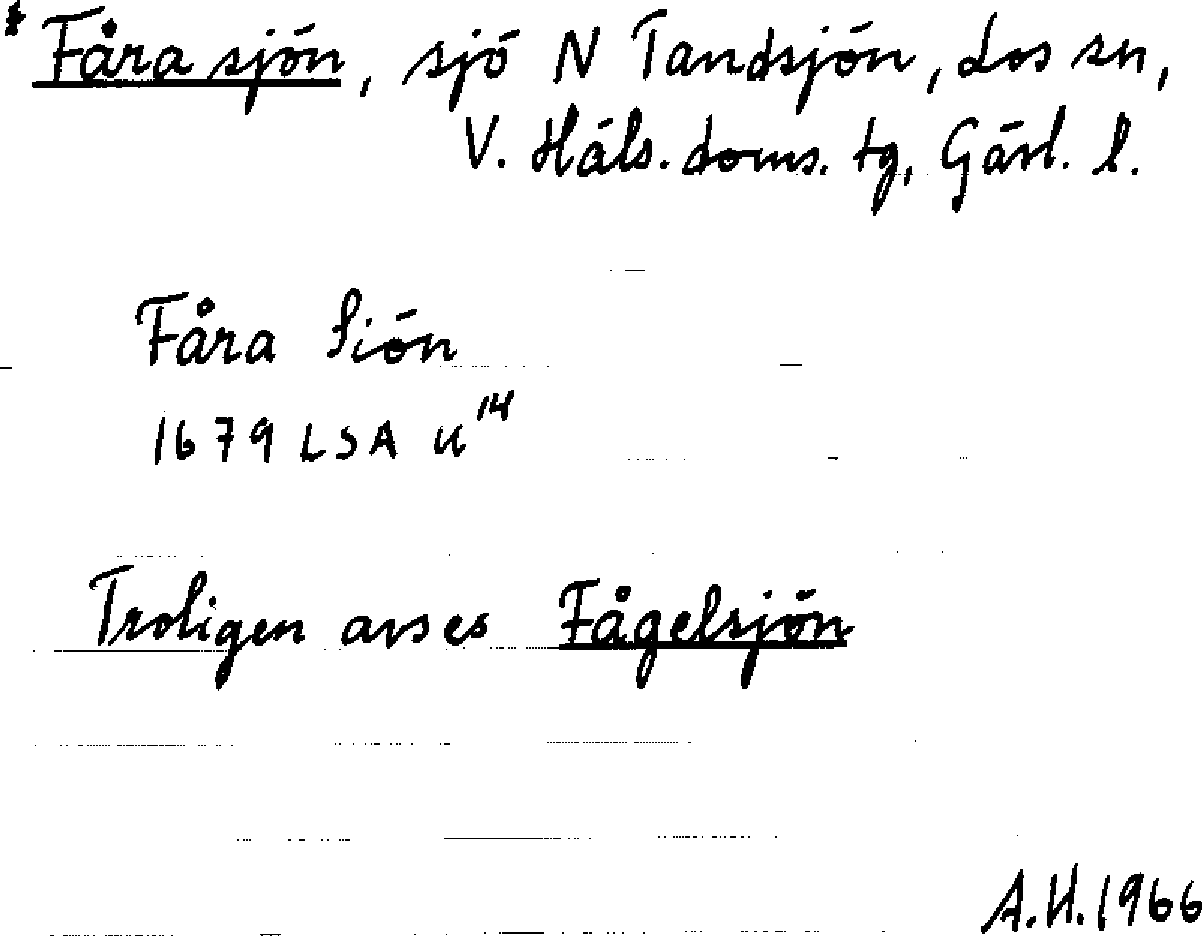 * Fårasjön, sjö N Tandsjön, Los sn,
V. Häls. doms. tg, Gävl. l.
Fåra Siön
1679 LSA U¹⁴
Troligen avses Fågelsjön
A.H. 1966